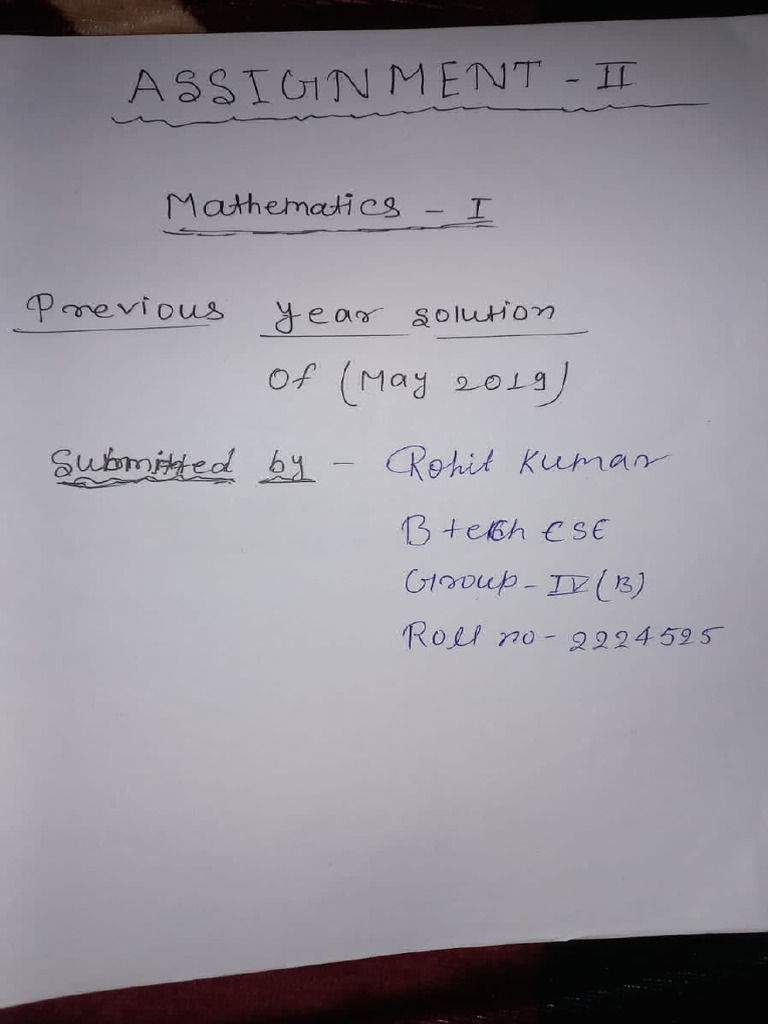 ASSIGNMENT - II
Mathematics - I
Previous year solution
Of (May 2019)
Submitted by - Rohit Kumar
B tech CSE
Group - IV (B)
Roll no - 2224525